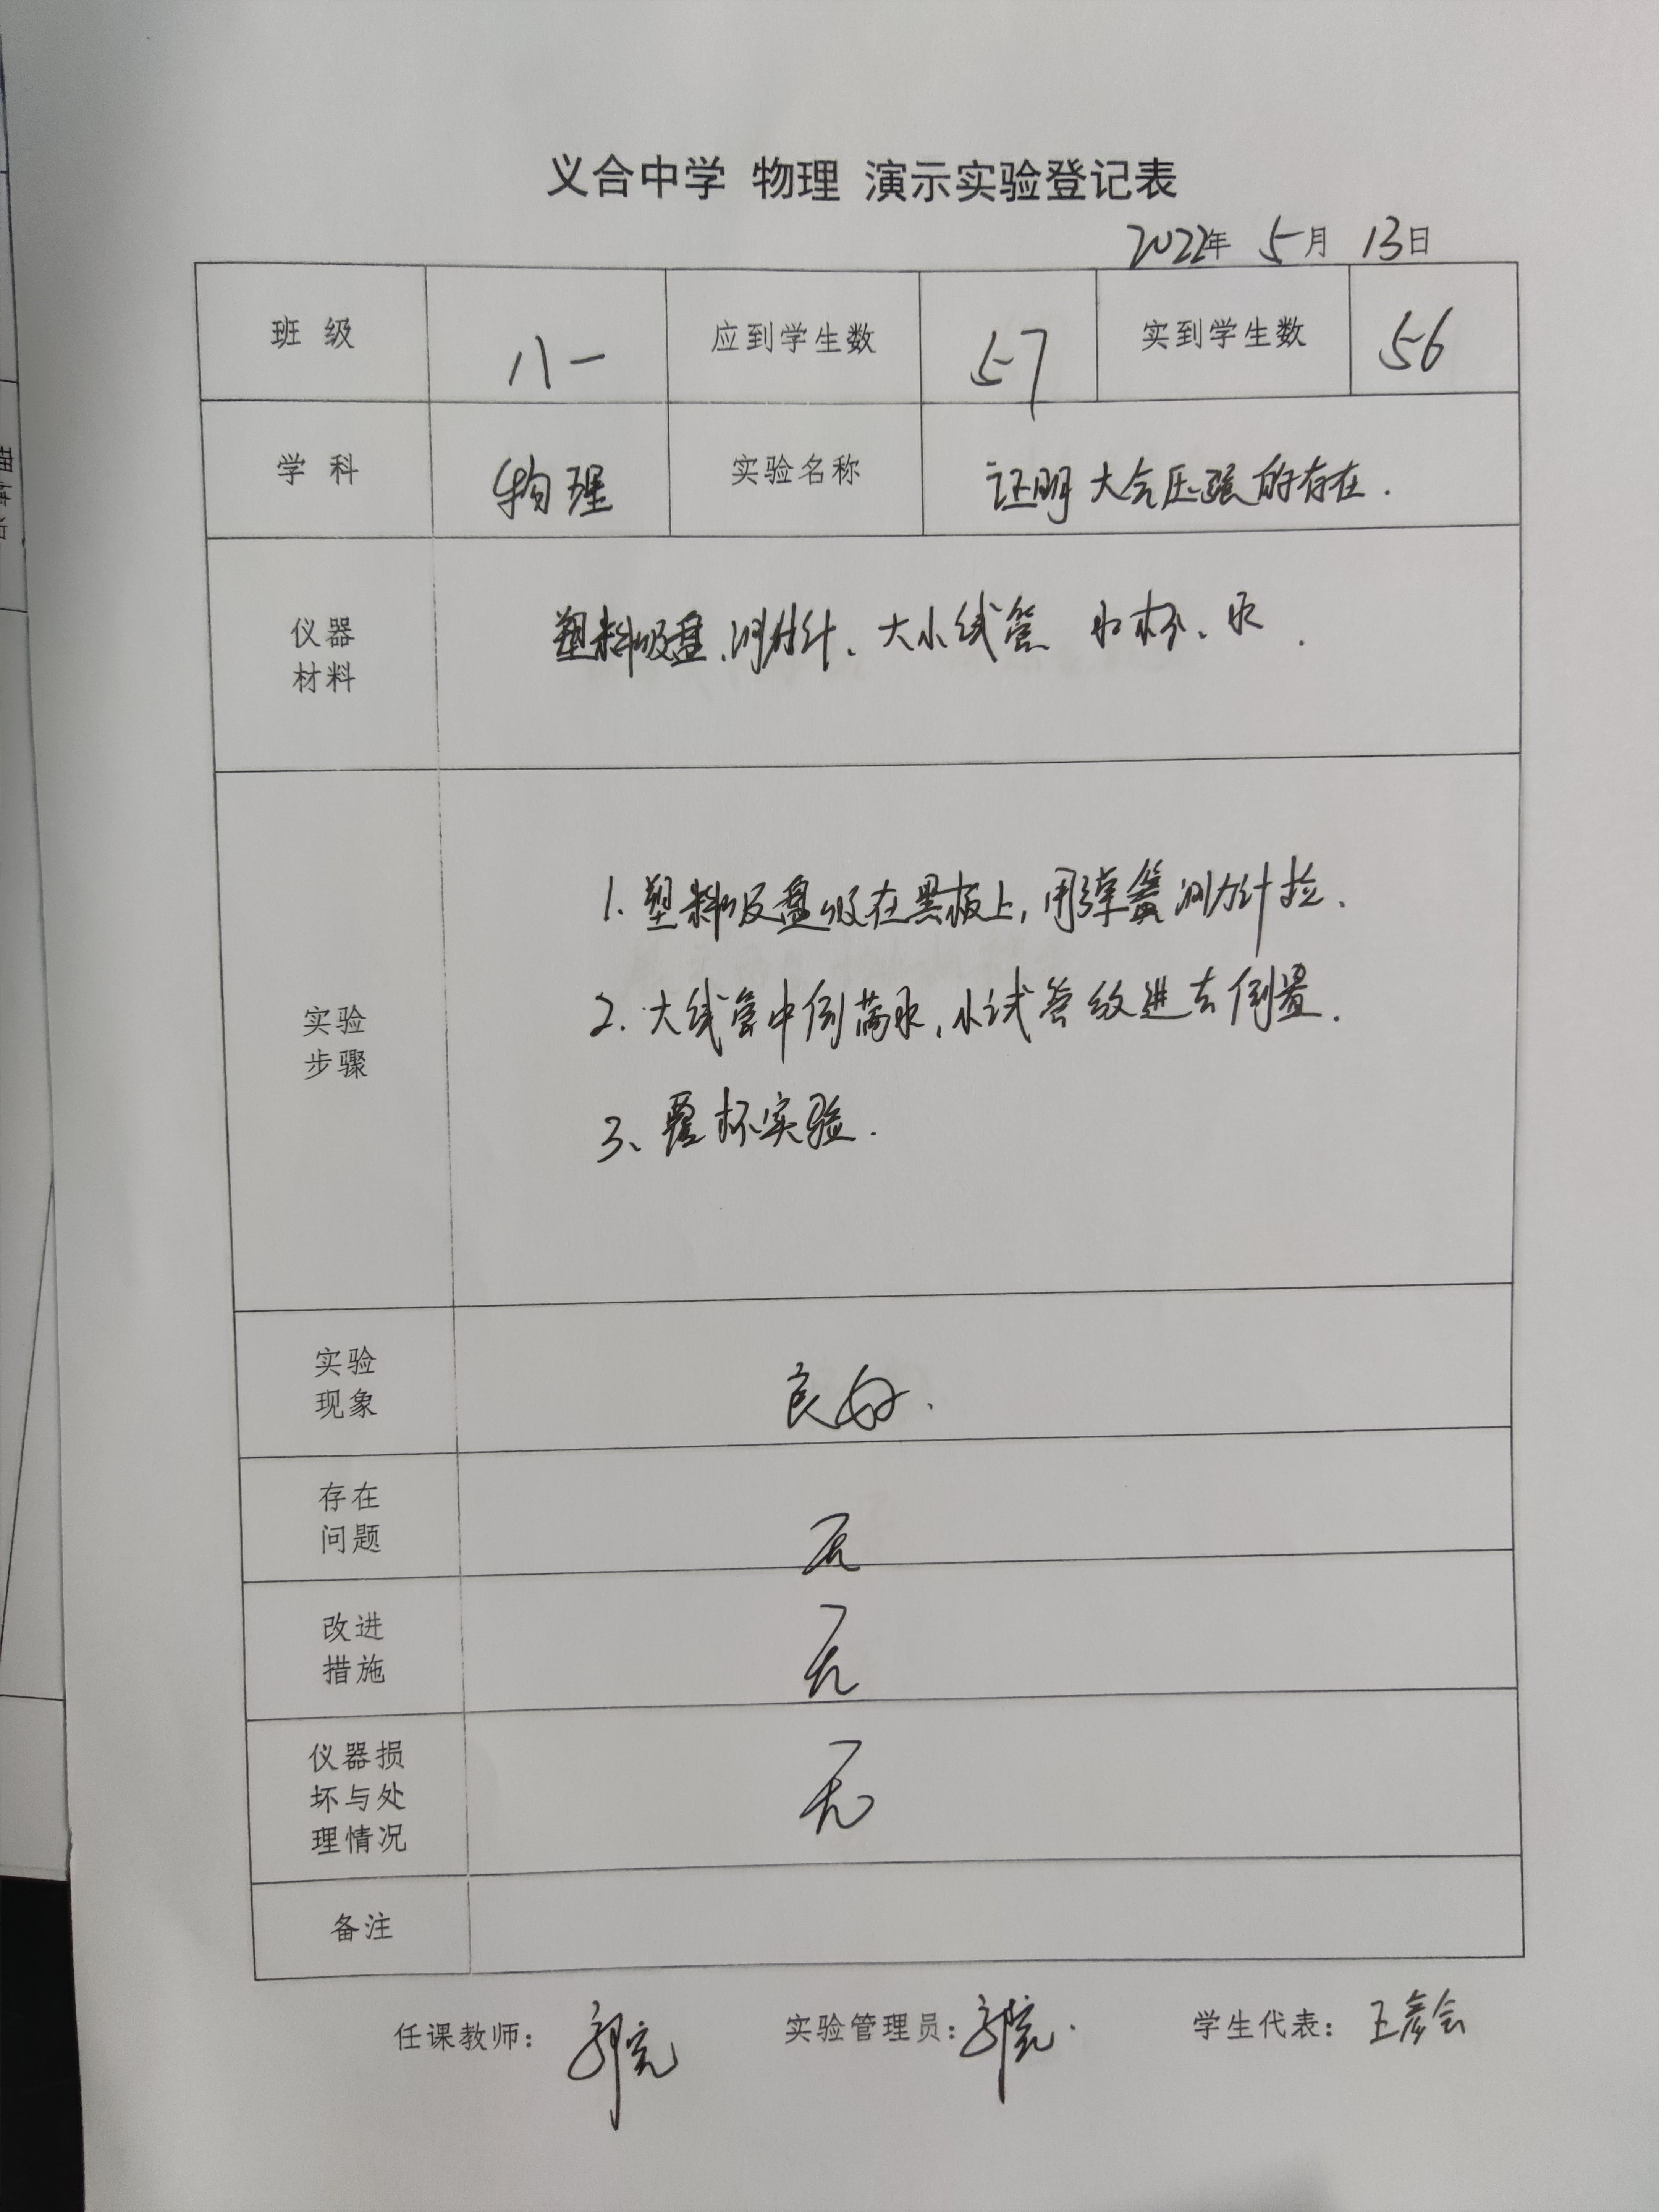 义合中学 物理 演示实验登记表
2022年 5月 13日
班 级 八一 应到学生数 57 实到学生数 56
学 科 物理 实验名称 证明大气压强的存在.
仪器
材料
塑料吸盘、测力计、大小试管 水杯、水.
实验
步骤
1. 塑料吸盘吸在黑板上,用弹簧测力计拉.
2. 大试管中倒满水,小试管放进去倒置.
3、覆杯实验.
实验
现象
良好.
存在
问题
无
改进
措施
无
仪器损
坏与处
理情况
无
备注
任课教师: 实验管理员: 学生代表: